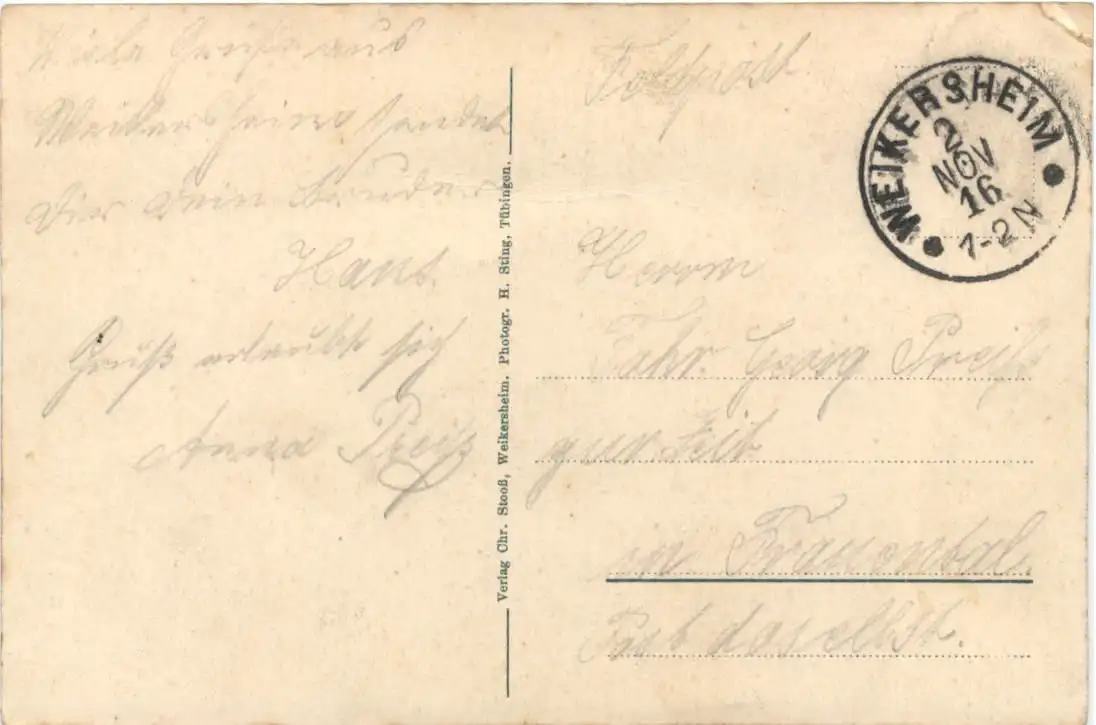 Viele Grüße aus
Weikersheim sendet
Dir Dein Bruder
Hans.
Gruß erlaubt sich
Anna Preiß
Verlag Chr. Stooß, Weikersheim. Photogr. H. Sting, Tübingen.
Feldpost
WEIKERSHEIM
2 NOV
16
1-2 N
Herrn
Fahr. Georg Preiß
zur Zeit
in Frauental.
Post daselbst.